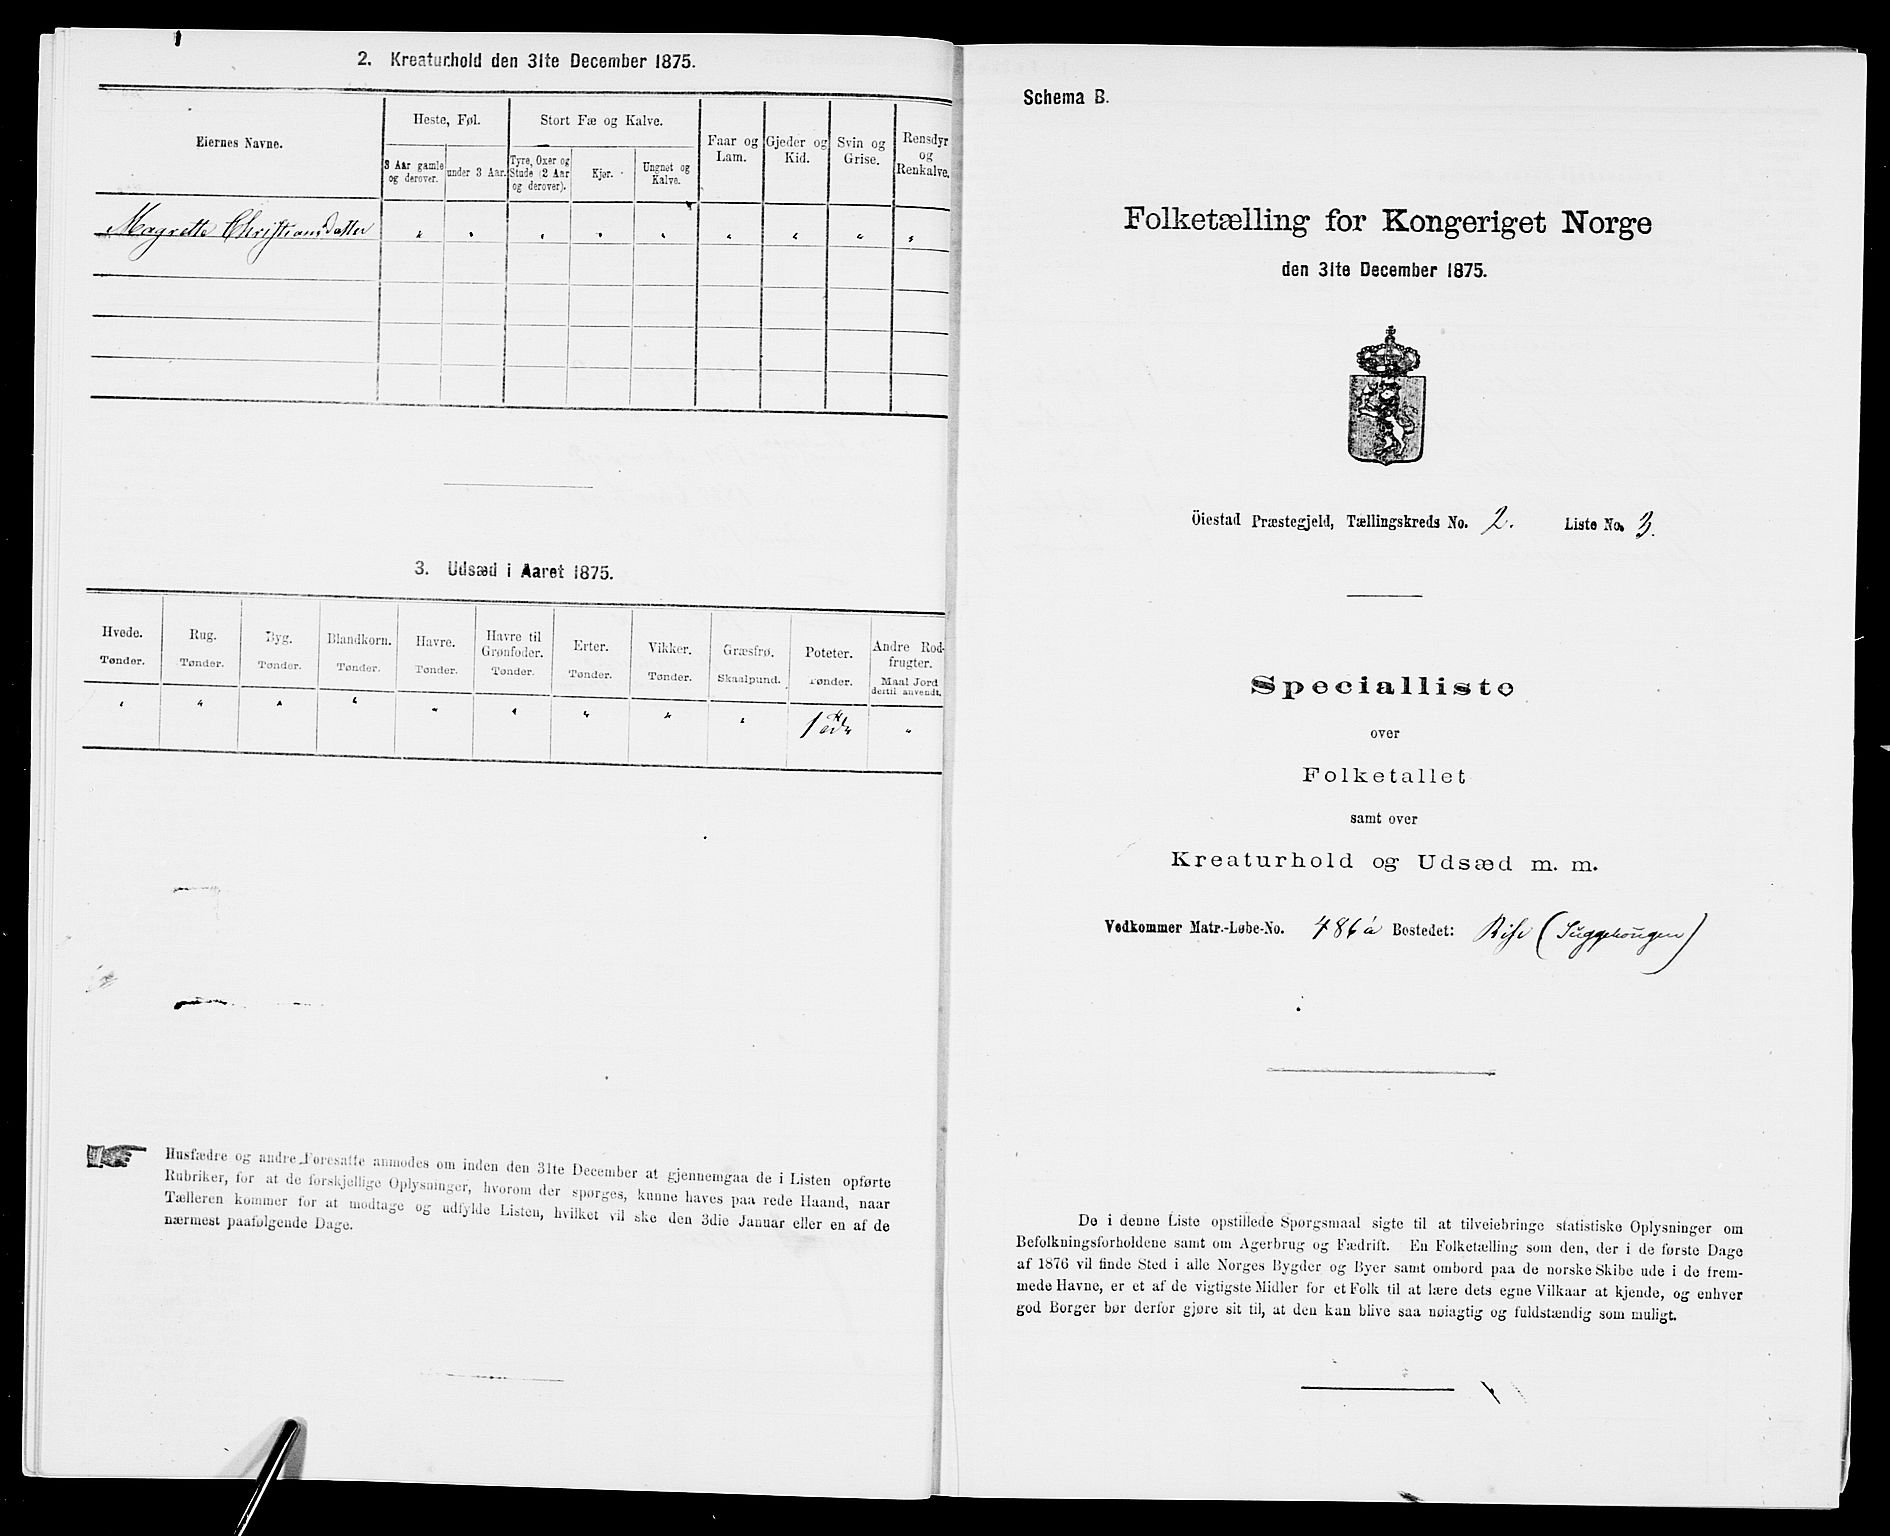 2. Kreaturhold den 31te December 1875.
Eiernes Navne.
Heste, Føl.
Stort Fæ og Kalve.
Faar og Lam.
Gjeder og Kid.
Svin og Grise.
Rensdyr og Renkalve.
3 Aar gamle og derover.
under 3 Aar.
Tyre, Oxer og Stude (2 Aar og derover).
Kjør.
Ungnøt og Kalve.
Magrette Christiansdatter " " " " " " " " "
3. Udsæd i Aaret 1875.
Hvede. Rug. Byg. Blandkorn. Havre. Havre til Grønfoder. Erter. Vikker. Græsfrø. Poteter. Andre Rodfrugter.
Tønder. Tønder. Tønder. Tønder. Tønder. Tønder. Tønder. Tønder. Skaalpund. Tønder. Maal Jord dertil anvendt.
" " " " " " " " " 1 "
Husfædre og andre Foresatte anmodes om inden den 31te December at gjennemgaa de i Listen opførte
Rubriker, for at de forskjellige Oplysninger, hvorom der spørges, kunne haves paa rede Haand, naar
Tælleren kommer for at modtage og udfylde Listen, hvilket vil ske den 3die Januar eller en af de
nærmest paafølgende Dage.
Schema B.
Folketælling for Kongeriget Norge
den 31te December 1875.
Öiestad Præstegjeld, Tællingskreds No. 2. Liste No. 3.
Specialliste
over
Folketallet
samt over
Kreaturhold og Udsæd m. m.
Vedkommer Matr.-Løbe-No. 486a Bostedet: Rise (Suggehougen)
De i denne Liste opstillede Spørgsmaal sigte til at tilveiebringe statistiske Oplysninger om
Befolkningsforholdene samt om Agerbrug og Fædrift. En Folketælling som den, der i de første Dage
af 1876 vil finde Sted i alle Norges Bygder og Byer samt ombord paa de norske Skibe ude i de frem-
mede Havne, er et af de vigtigste Midler for et Folk til at lære dets egne Vilkaar at kjende, og enhver
god Borger bør derfor gjøre sit til, at den kan blive saa nøiagtig og fuldstændig som muligt.